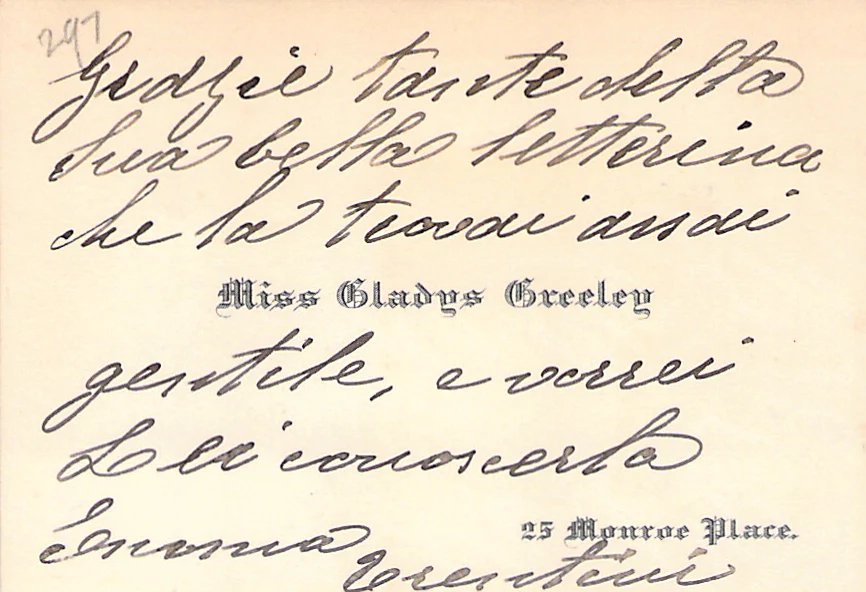 297
Grazie tante della
sua bella letterina
che la trovai assai
Miss Gladys Greeley
gentile, e vorrei
Lei conoscerla
Emma
25 Monroe Place.
Trentini